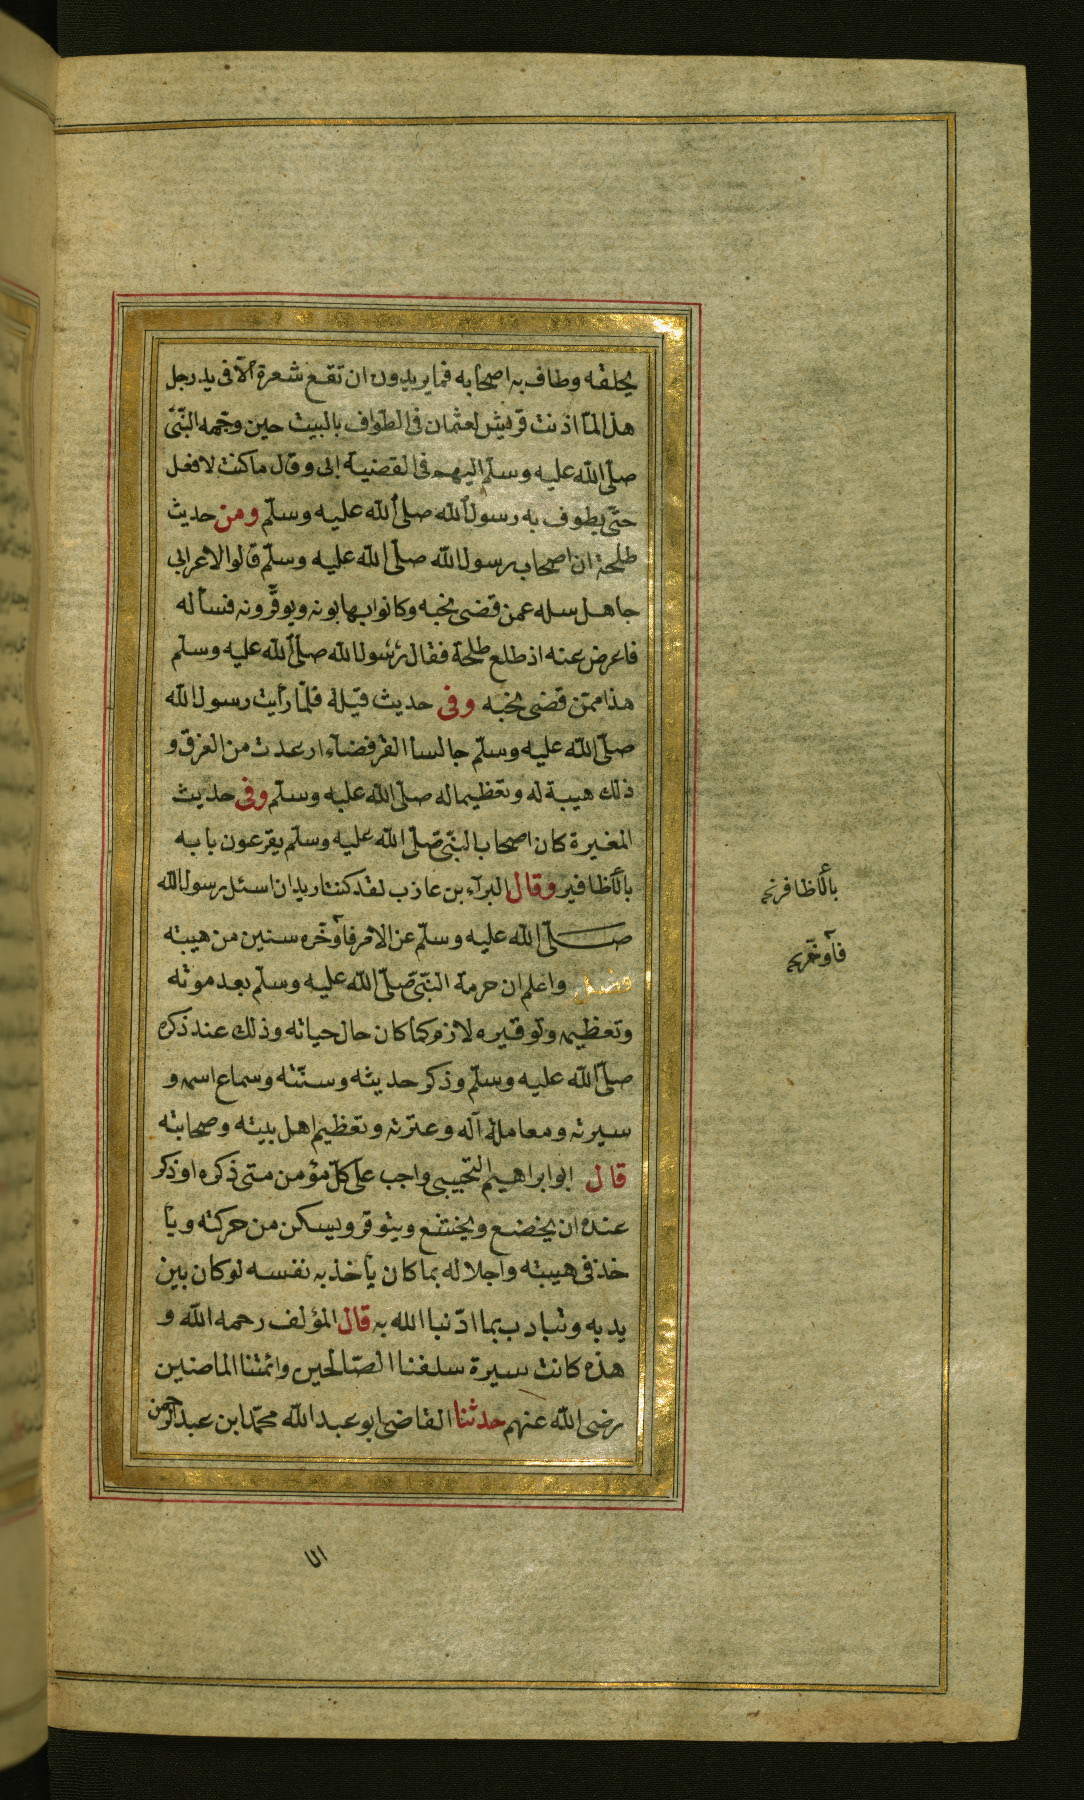 يحلقه وطاف به اصحابه فما يريدون ان تقع شعرة الّا فى يد رجل
هذا لمّا اذنت قريش لعثمان فى الطّواف بالبيت حين وجّهه النّبىّ
صلّى اللّه عليه وسلّم اليهم فى القضية ابى وقال ما كنت لافعل
حتّى يطوف به رسول اللّه صلّى اللّه عليه وسلّم ومن حديث
طلحة ان اصحاب رسول اللّه صلّى اللّه عليه وسلّم قالوا لاعرابى
جاهل سله عمن قضى نحبه وكانوا يهابونه ويوقّرونه فسأله
فاعرض عنه اذ طلع طلحة فقال رسول اللّه صلّى اللّه عليه وسلّم
هذا ممّن قضى نحبه وفى حديث قيلة فلمّا رأيت رسول اللّه
صلّى اللّه عليه وسلّم جالسا القرفصاء ارعدت من الفرق و
ذلك هيبة له وتعظيما له صلّى اللّه عليه وسلّم وفى حديث
المغيرة كان اصحاب النّبىّ صلّى اللّه عليه وسلّم يقرعون بابه
بالأظافير وقال البرآء بن عازب لقد كنت اريد ان اسئل رسول اللّه
صلّى اللّه عليه وسلّم عن الامر فأوخّره سنين من هيبته
فصل واعلم ان حرمة النّبىّ صلّى اللّه عليه وسلّم بعد موته
وتعظيمه وتوقيره لازم كما كان حال حياته وذلك عند ذكره
صلّى اللّه عليه وسلّم وذكر حديثه وسنّته وسماع اسمه و
سيرته ومعاملة آله وعترته وتعظيم اهل بيته وصحابته
قال ابو ابراهيم التجيبى واجب على كلّ مؤمن متى ذكره او ذكر
عنده ان يخضع ويخشع ويتوقر ويسكن من حركته ويأ
خذ فى هيبته واجلاله بما كان يأخذ به نفسه لو كان بين
يديه ويتادب بما ادّبنا الله به قال المؤلف رحمه اللّه و
هذه كانت سيرة سلفنا الصّالحين وائمتنا الماضين
رضى اللّه عنهم حدثنا القاضى ابو عبد اللّه محمّد ابن عبد الرحمن
بالأظافر نخ
فأوخّر نخ